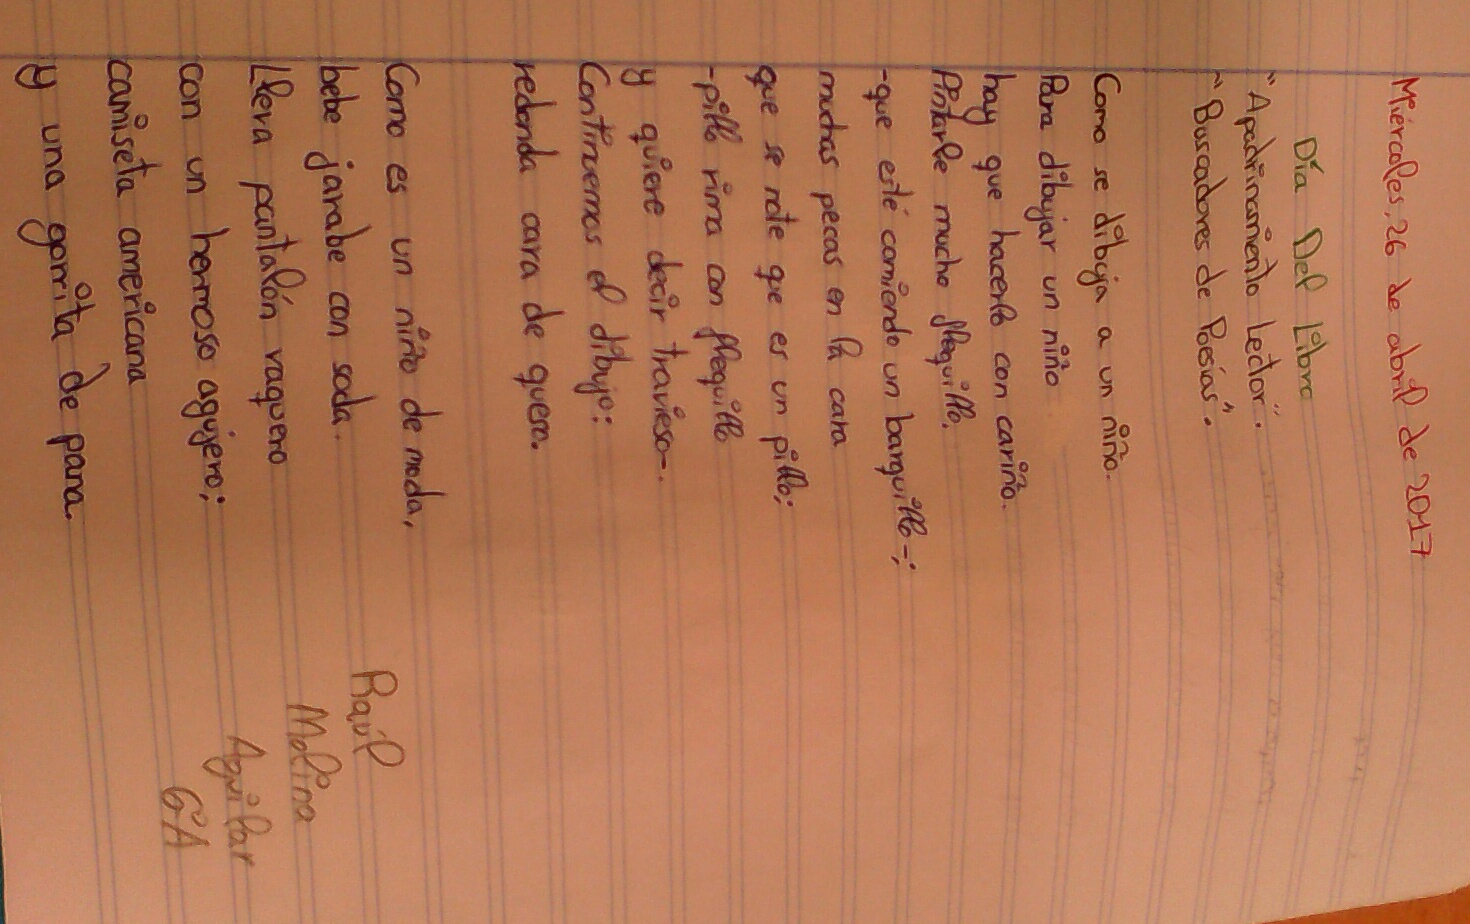 Miércoles, 26 de abril de 2017
Día Del Libro
"Apadrinamiento Lector".
"Buscadores de Poesías".
Como se dibuja a un niño.
Para dibujar un niño
hay que hacerlo con cariño.
Pintarle mucho flequillo.
-que esté comiendo un barquillo-;
muchas pecas en la cara
que se note que es un pillo;
-pillo rima con flequillo
y quiere decir travieso-.
Continuemos el dibujo:
redonda cara de queso.
Como es un niño de moda,
bebe jarabe con soda.
Lleva pantalón vaquero
con un hermoso agujero;
camiseta americana
y una gorrita de pana.
Raúl
Molina
Aguilar
6ºA